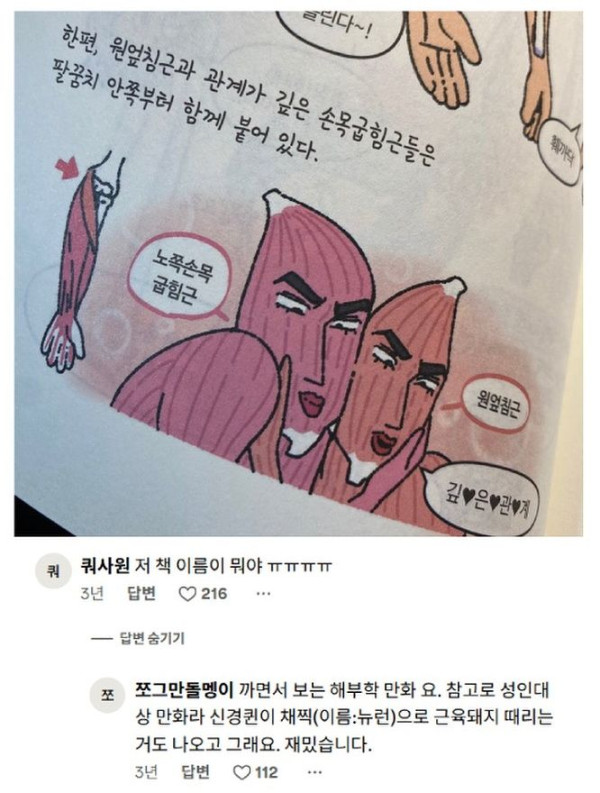 른다~!
한편, 원엎침근과 관계가 깊은 손목굽힘근들은
팔꿈치 안쪽부터 함께 붙어 있다.
노쪽손목
굽힘근
원엎침근
깊♥은♥관♥계
쿼
쿼사원 저 책 이름이 뭐야 ㅠㅠㅠㅠ
3년 답변 ♡ 216 ···
답변 숨기기
쪼
쪼그만돌멩이 까면서 보는 해부학 만화 요. 참고로 성인대
상 만화라 신경퀸이 채찍(이름:뉴런)으로 근육돼지 때리는
거도 나오고 그래요. 재밌습니다.
3년 답변 ♡ 112 ···